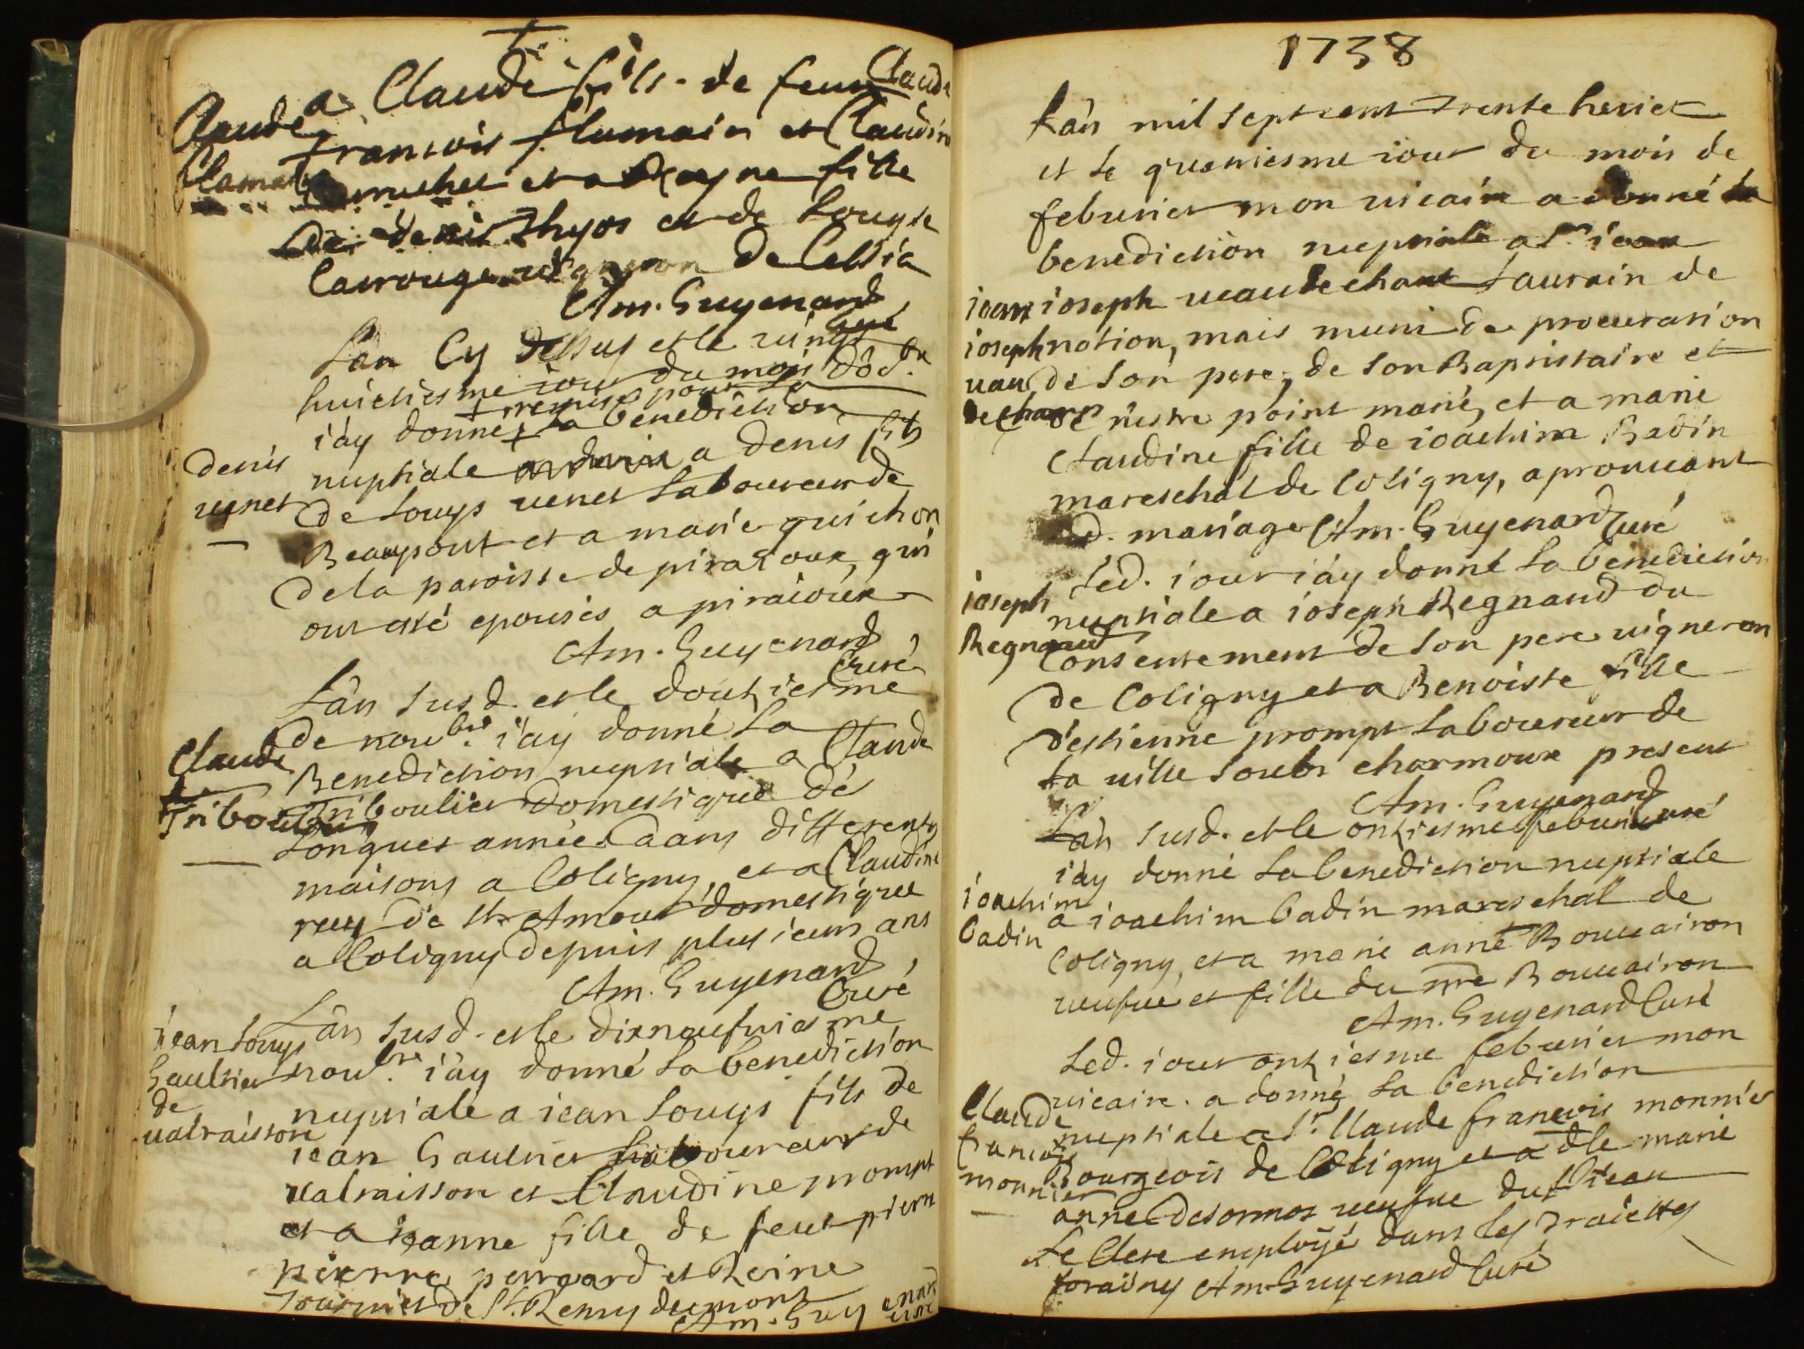 a Claude fils de feu Claude
Claude
francois flamain et Claudine
flamain
et a Reyne fille
de denis Thyos et de Louyse
Carrouge vigneron de Cessia
Am. Guyenard
Curé
L'an Cy dessus et le vingt
huictiesme iour du mois d'od. bre
i'ay donné + remise pour la
la benediction
denis
venet
nuptiale a denis fils
de Louys venet Laboureur de
Beaupont et a marie guichon
de la paroisse de pirajoux, qui
ont esté epousés a piraioux
Am. Guyenard,
Curé
L'an susd. et le douziesme
de noubre i'ay donné La
Claude
Triboulier
Benediction nuptiale a Claude
Triboulier domestique dès
Longues années dans differents
maisons a Coligny, et a Claudine
ruy de St Amour domestique
a Coligny depuis plusieurs ans
Am. Guyenard,
Curé
L'an susd. et le dixneufuiesme
iean Louys
Gaultier
de
valraisson
noubre i'ay donné La benediction
nuptiale a iean Louys fils de
iean Gaultier Laboureur de
valraisson et Claudine prompt
et a ieanne fille de feut pierre
pierre pengard et Reine
de St. Remy du mont
Am. Guyenard
curé
1738
L'an mil sept cent trente huict
et le quatriesme iour du mois de
feburier mon vicaire a donné la
benediction nuptiale a Sr iean
iean
ioseph
vau
dechamp
ioseph vaudechamp Laurain de
notion, mais muni de procuration
de son pere, de son Baptistaire et
de n'estre point marié, et a marie
Claudine fille de ioachim Badin
mareschal de Coligny, aprouuant
Led. mariage Am. Guyenard Curé
Led. iour i'ay donné La benediction
ioseph
Regnaud
nuptiale a ioseph Regnaud du
Consentement de son pere vigneron
de Coligny et a Benoiste fille
d'estienne prompt Laboureur de
La ville soubs charmoux present
Am. Guyenard
Curé
L'an susd. et le onziesme feburier
i'ay donné La benediction nuptiale
ioachim
badin
a ioachim badin mareschal de
Coligny, et a marie anne Bouuairon
veufue et fille du mre Bouuairon
Am. Guyenard Curé
Led. iour onziesme feburier mon
vicaire a donné La benediction
Claude
francois
monnier
nuptiale a Sr. Claude francois monnier
Bourgeois de Coligny et a dlle marie
anne desormos veufue du Sr iean
Le Clerc employé dans les traictes
forains Am. Guyenard Curé